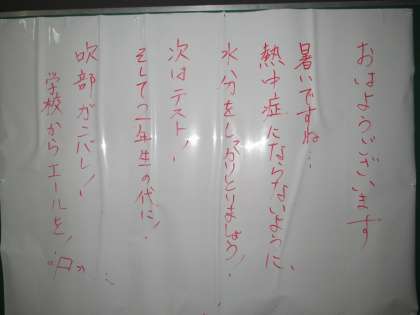 おはようございます
暑いですね…
熱中症にならないように、
水分をしっかりとりましょう！
次はテスト！
そして一年生の代に！
吹部がンバレ！！
学校からエールを！